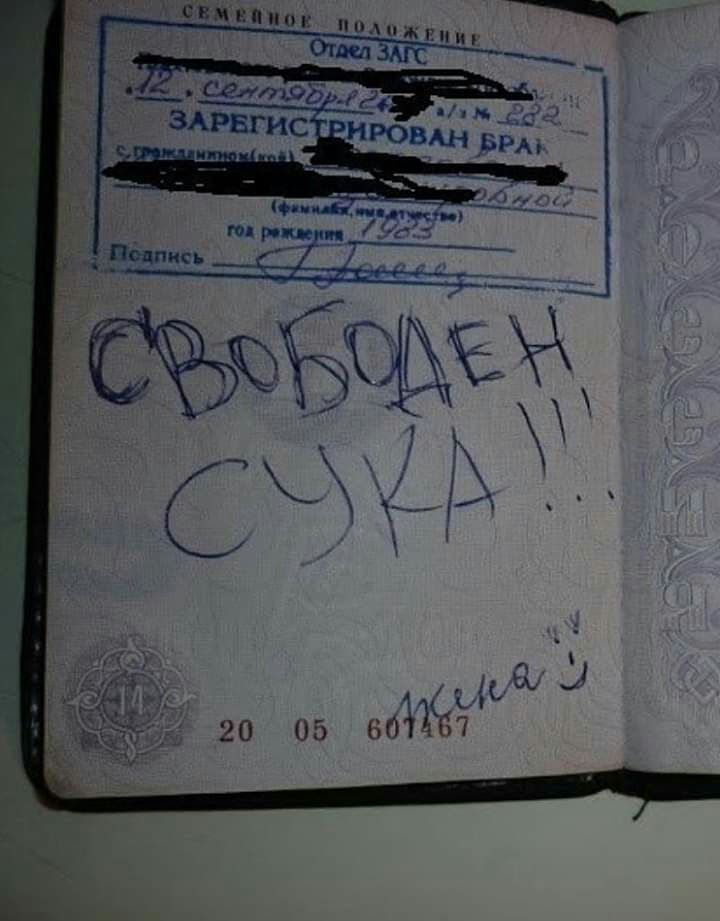 СЕМЕЙНОЕ ПОЛОЖЕНИЕ
Отдел ЗАГС
12. сентября а/з № 232
ЗАРЕГИСТРИРОВАН БРАК
с гражданином(кой)
(фамилия, имя, отчество)
год рождения 1983
Подпись
СВОБОДЕН
СУКА!!!
жена
14
20 05 607467